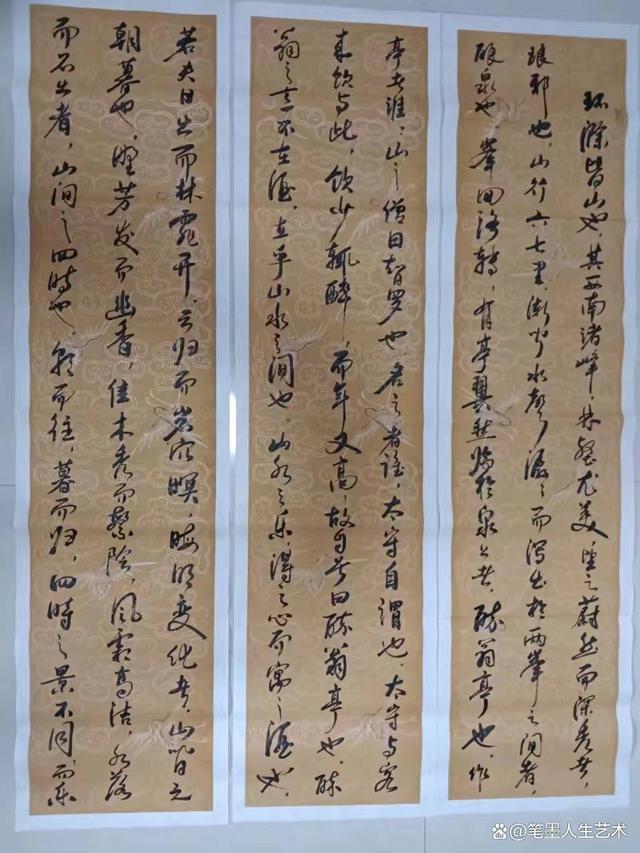 环滁皆山也，其西南诸峰，林壑尤美，望之蔚然而深秀者，
琅邪也，山行六七里，渐闻水声潺々而泻出于两峯之间者，
酿泉也，峯回路转，有亭翼然临于泉上者，醉翁亭也，作
亭者谁，山之僧曰智罗也，名之者谁，太守自谓也，太守与客
来饮与此，饮少辄醉，而年又高，故自号曰醉翁亭也，醉
翁之意不在酒，在乎山水之间也，山水之乐，得之心而寓之酒也，
若夫日出而林霏开，云归而岩穴暝，晦明变化者，山间之
朝暮也，野芳发而幽香，佳木秀而繁阴，风霜高洁，水落
而石出者，山间之四时也，朝而往，暮而归，四时之景不同，而乐
@笔墨人生艺术